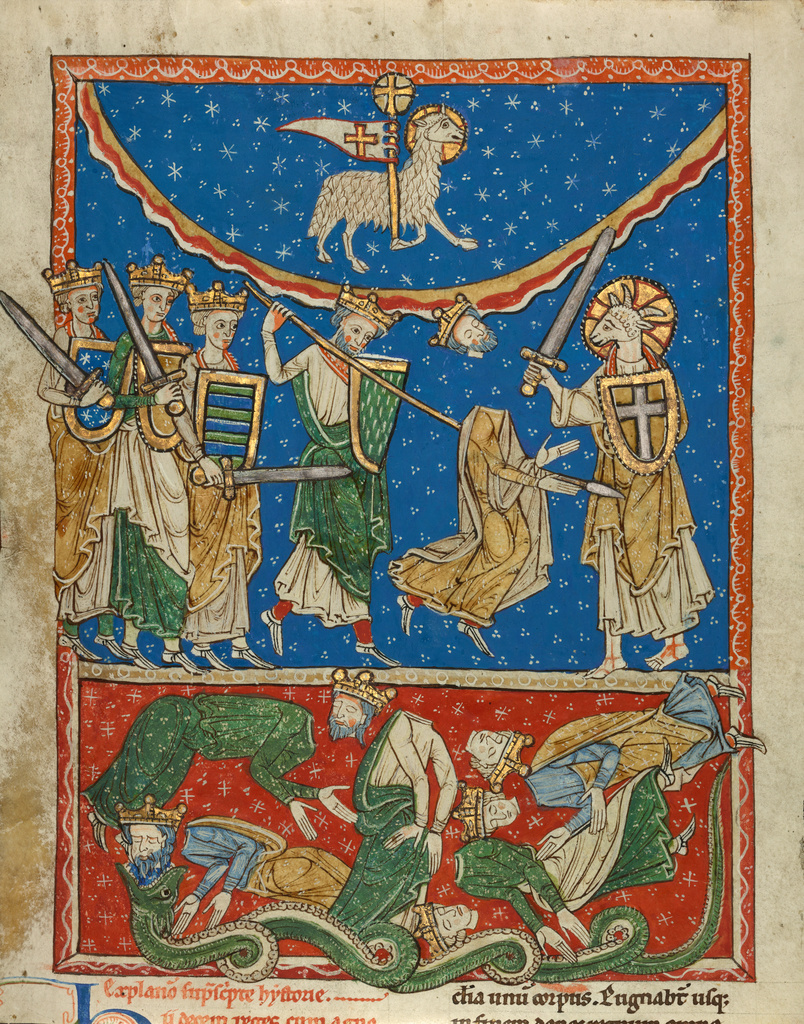 Explanatō sup̄scͥpte hystorie.
ii decem reges cum agno
cl̄ia unū corpus. Pugnabt̄ usq;
in finem